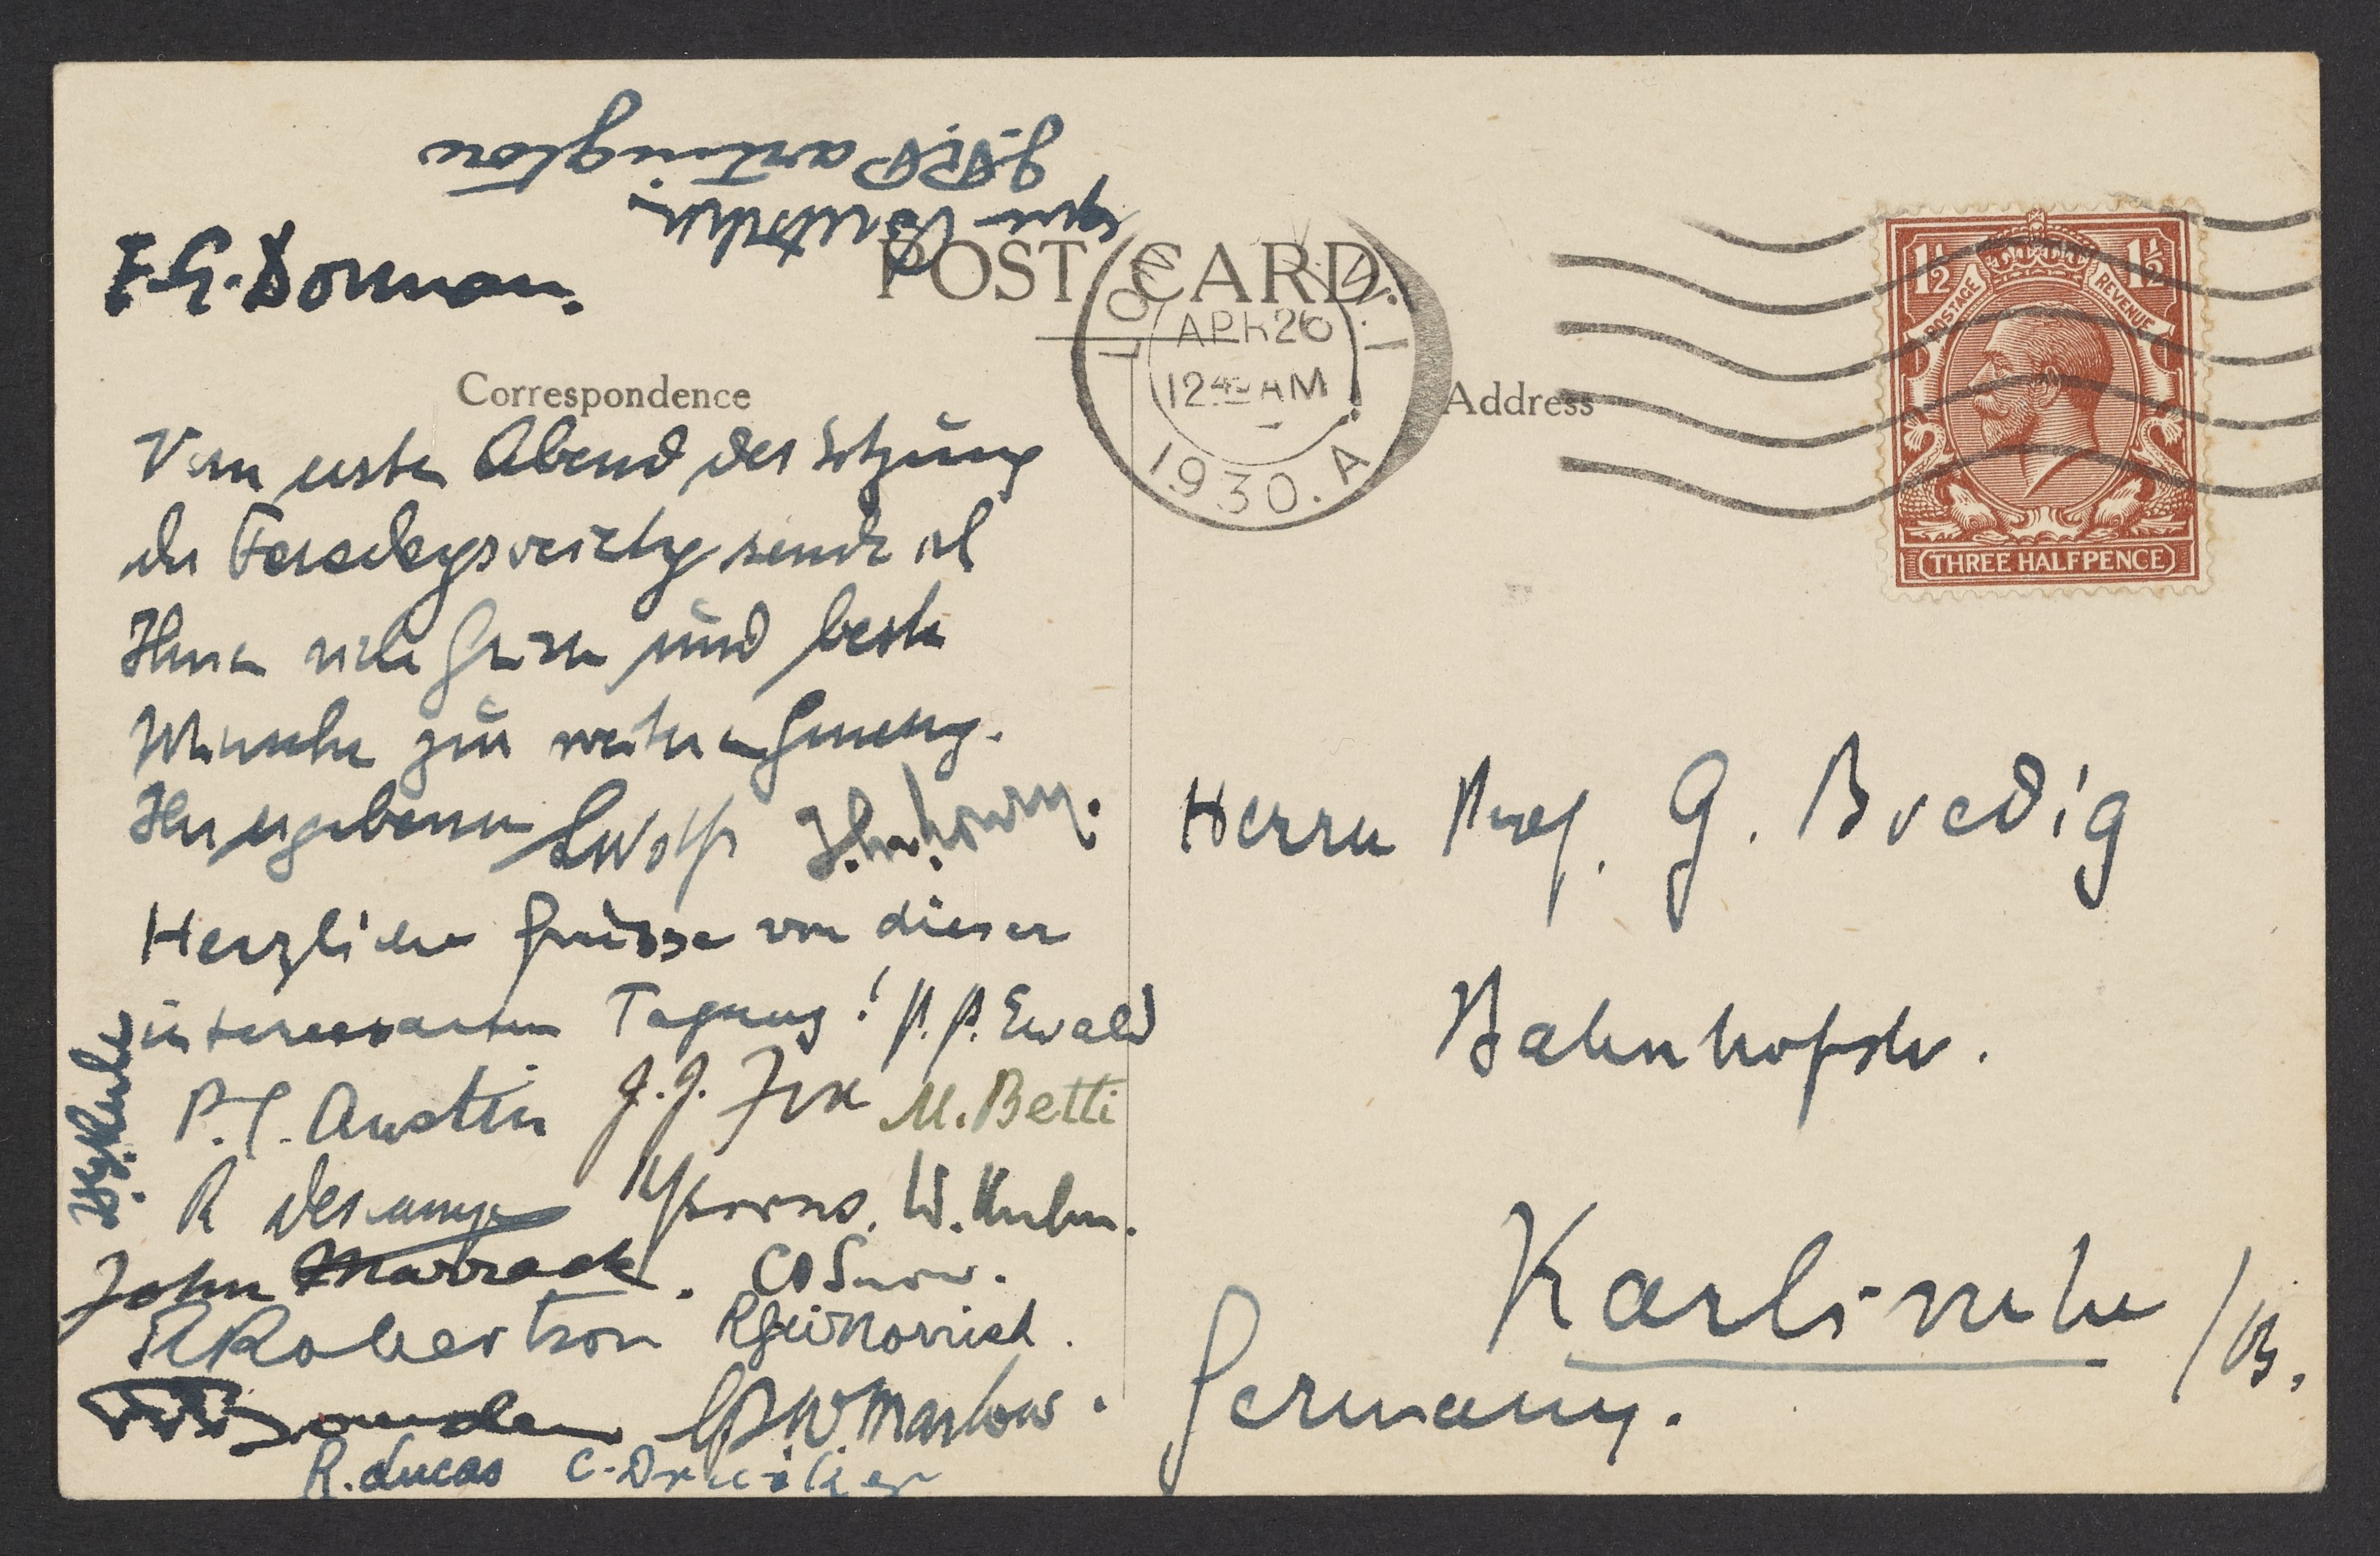 J. R. Partington
zur
POST CARD.
LON W.1
APR 26
12 45 AM
1930. A
1½ 1½
POSTAGE REVENUE
THREE HALFPENCE
Correspondence
Address
Vom ersten Abend der Sitzung
der sende ich
Ihnen viele Grüsse und beste
Wünsche zur weiteren Genesung.
Ihr ergebener
Herzliche Grüsse von dieser
interessanten Tagung! P. P. Ewald
Austin J. J. Fox M. Betti
R W. Kuhn.
John Marrack. CP Snow.
Robertson RGW Norrish.
Marlow.
R. Lucas C.
Herrn Prof. G. Bredig
Bahnhofstr.
Karlsruhe /B.
Germany.